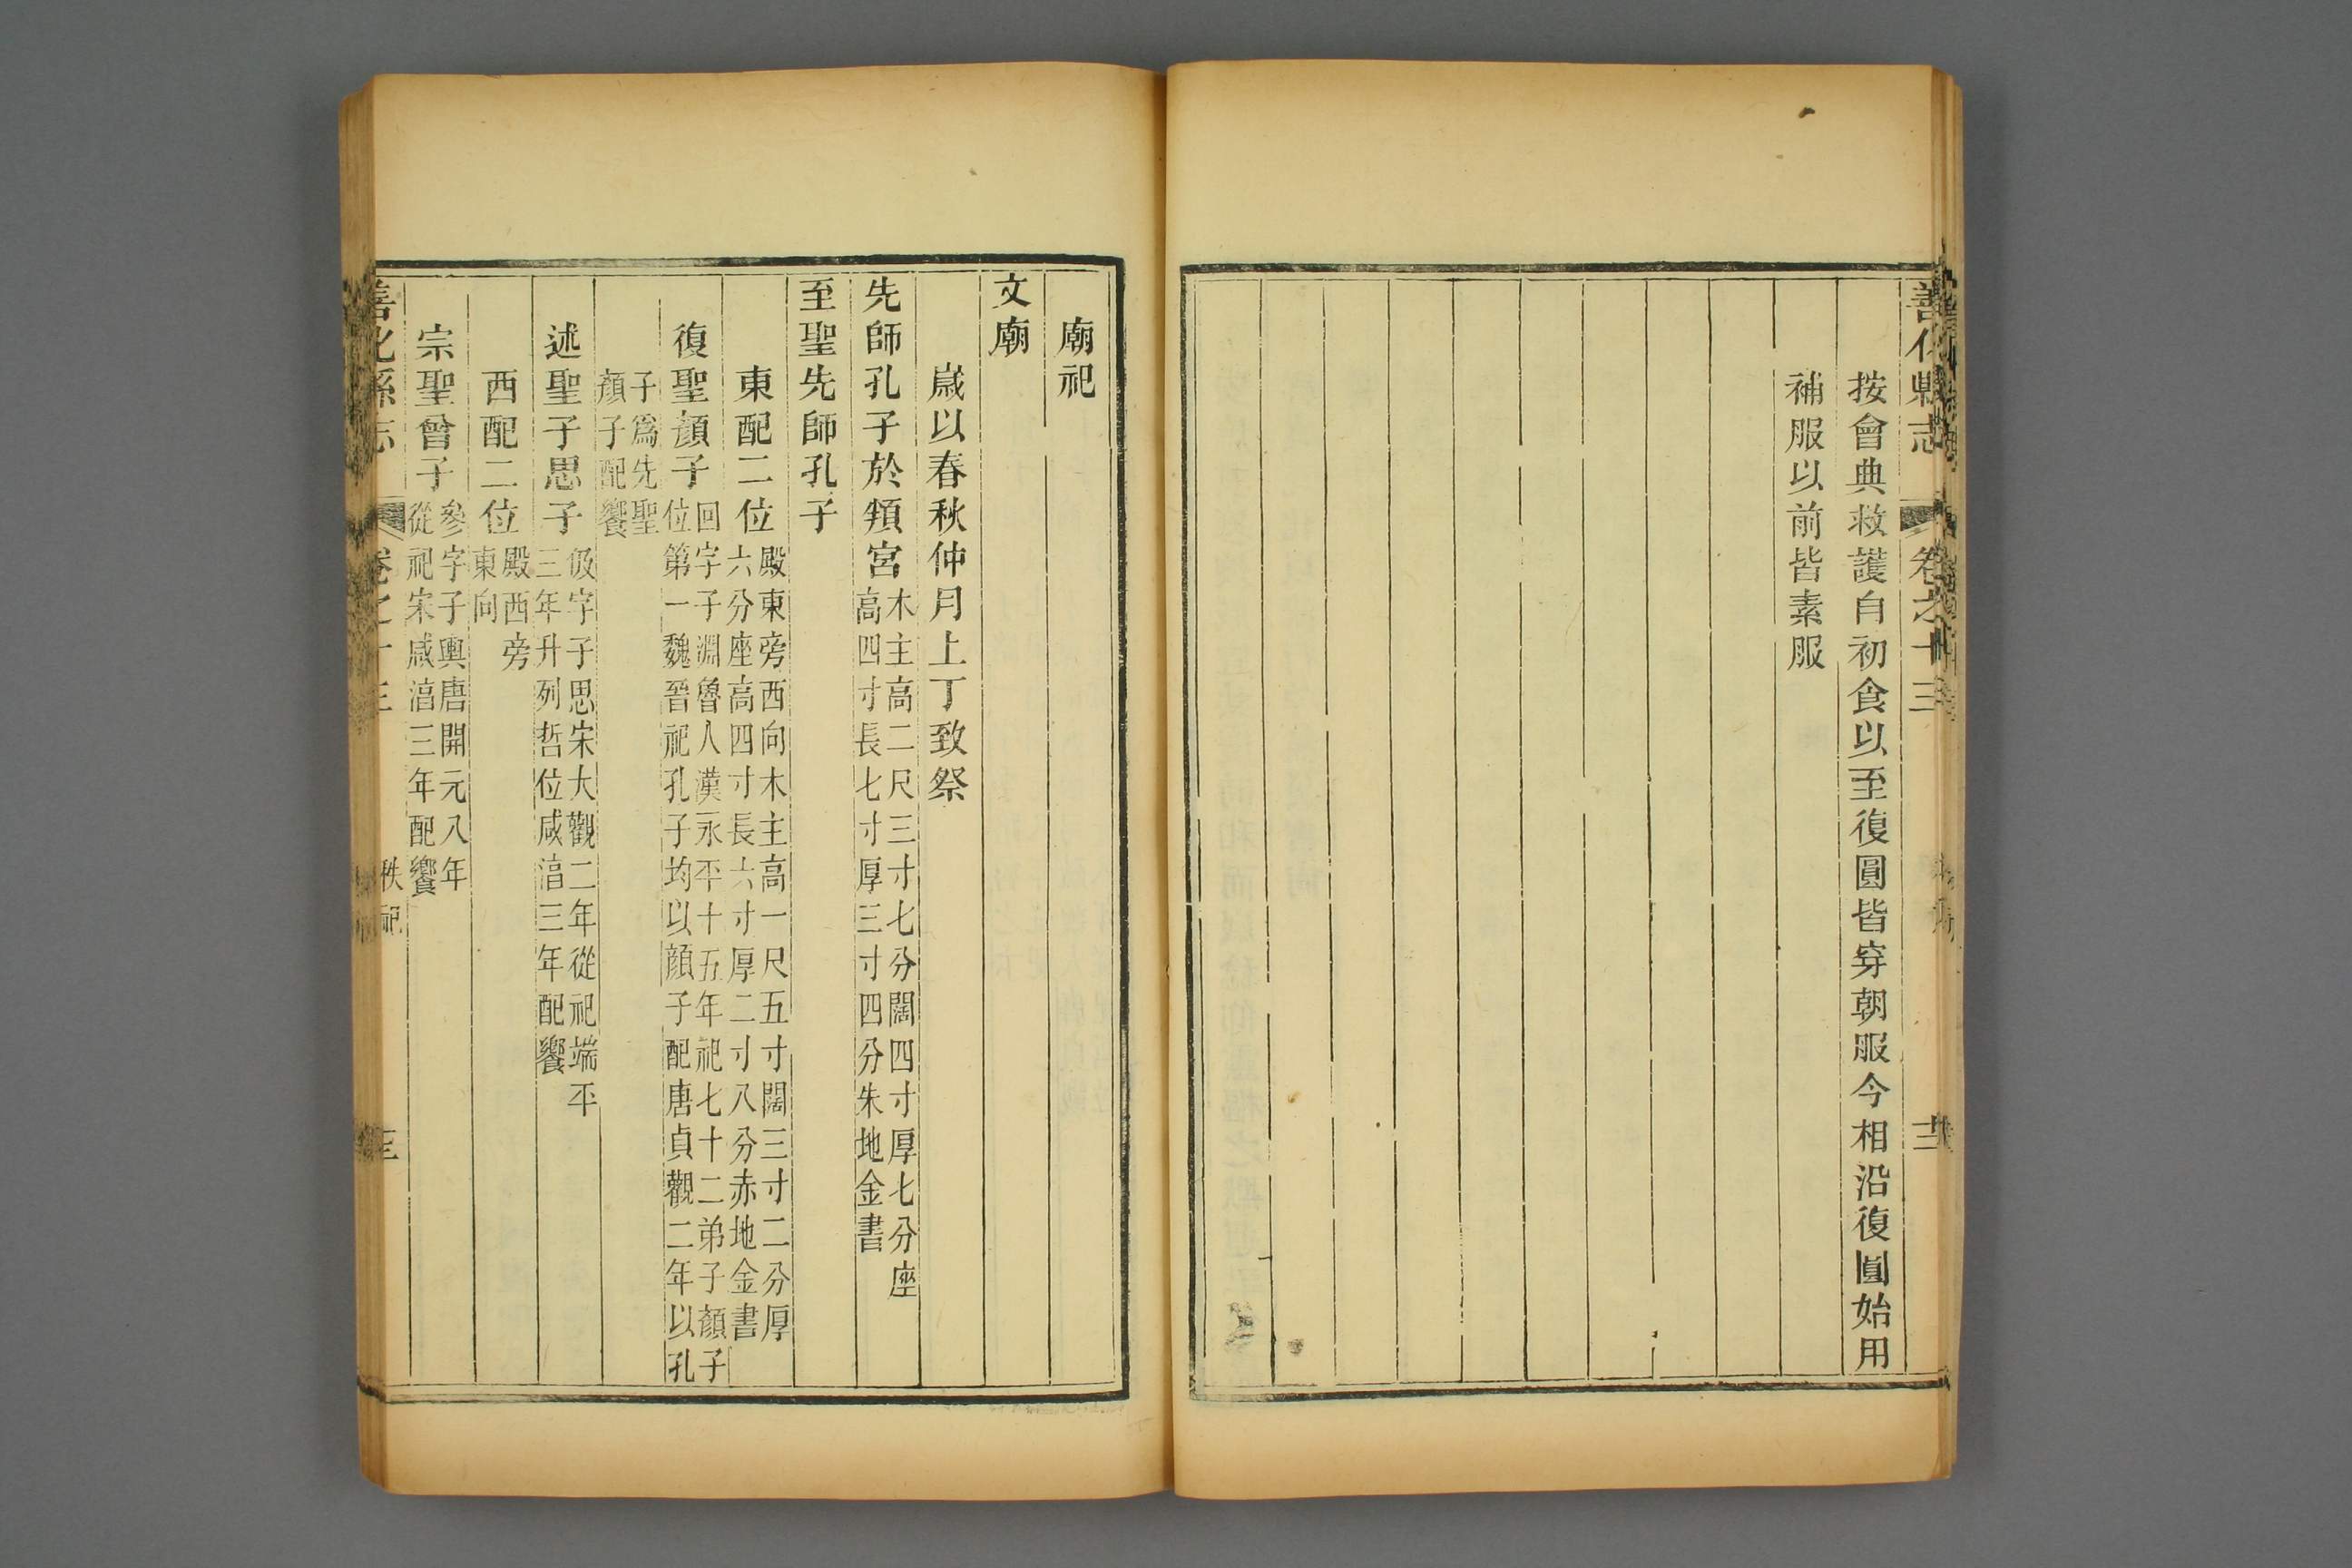 善化縣志
卷之十三
按會典救護自初食以至復圓皆穿朝服今相沿復圓始用
補服以前皆素服
廟祀
文廟
歲以春秋仲月上丁致祭
先師孔子於頖宮木主高二尺三寸七分闊四寸厚七分座
高四寸長七寸厚三寸四分朱地金書
至聖先師孔子
東配二位殿東旁西向木主高一尺五寸闊三寸二分厚
六分座高四寸長六寸厚二寸八分赤地金書
復聖顔子回字子淵魯人漢永平十五年祀七十二弟子顔子
位第一魏晉祀孔子均以顔子配唐貞觀二年以孔
子爲先聖
顔子配饗
述聖子思子伋字子思宋大觀二年從祀端平
三年升列哲位咸淯三年配饗
西配二位殿西旁
東向
宗聖曾子參字子輿唐開元八年
從祀宋咸淯三年配饗
善化縣志
卷之十三
秩祀